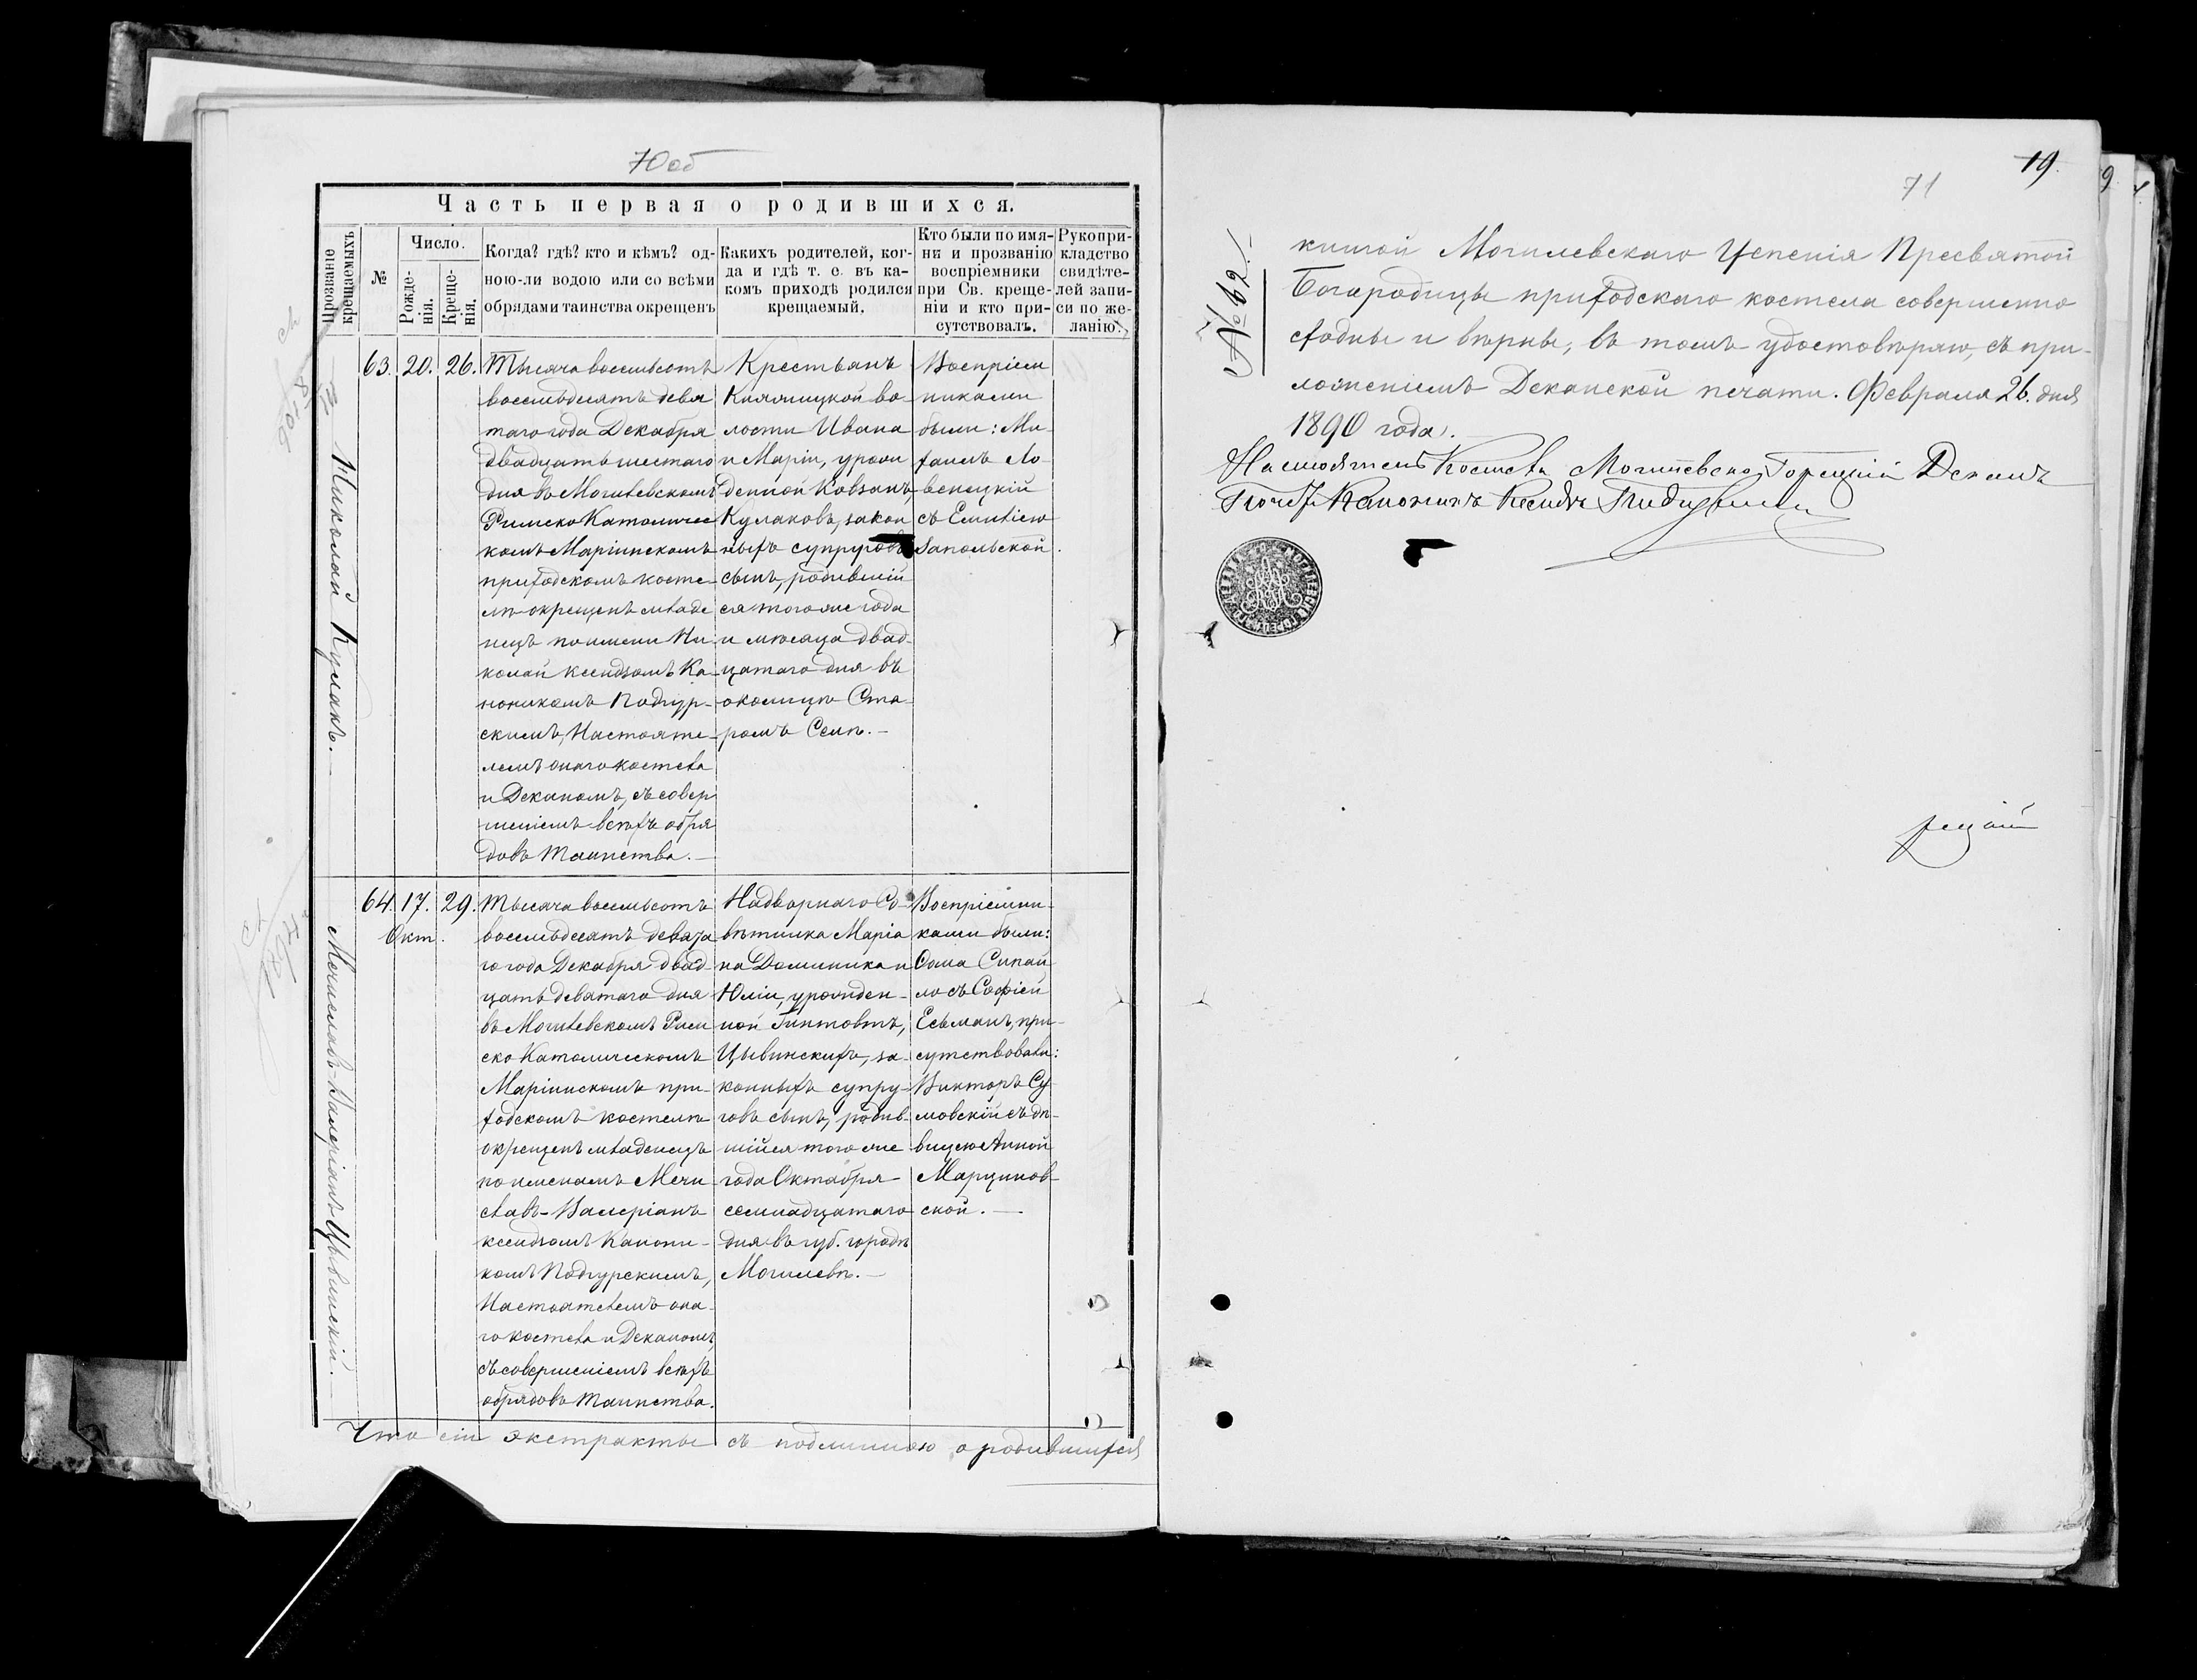 70об
Часть первая о родившихся.
Прозваніе крещаемыхъ
№
Число.
Рожде-
нія.
Креще-
нія.
Когда? гдѣ? кто и кѣмъ? од-
ною-ли водою или со всѣми
обрядами таинства окрещенъ
Какихъ родителей, ког-
да и гдѣ т. е. въ ка-
комъ приходѣ родился
крещаемый.
Кто были по имя-
ни и прозванію
воспріемники
при Св. креще-
ніи и кто при-
сутствовалъ.
Рукопри-
кладство
свидѣте-
лей запи-
си по же-
ланію.
Николай Кулакъ.
63. 20. 26.
Тысяча восемьсотъ
восемьдесятъ девя
таго года Декабря
двадцать шестаго
дня въ Могилевскомъ
Римско Католичес
комъ Маріинскомъ
приходскомъ косте-
лѣ окрещенъ младе
нецъ по имени Ни
колай ксендзомъ Ка
ноникомъ Подгур-
скимъ, Настояте-
лемъ онаго костела
и Деканомъ, съ совер
шеніемъ всѣхъ обря
довъ Таинства.—
Крестьянъ
Княжицкой во-
лости Ивана
и Маріи, урож
денной Ковзанъ,
Кулаковъ, закон
ныхъ супруговъ
сынъ, родившій
ся того же года
и мѣсяца двад-
цатаго дня въ
околицѣ Ста-
ромъ Селѣ.—
Воспріем
никами
были: Ми-
хаилъ Ло-
венецкій
съ Емиліею
Запольской.
Мечиславъ-Валеріанъ Цывинскій.
64. 17. 29.
Окт.
Тысяча восемьсотъ
восемьдесятъ девята
го года Декабря двад-
цать девятаго дня
въ Могилевскомъ Рим
ско Католическомъ
Маріинскомъ при-
ходскомъ костелѣ
окрещенъ младенецъ
по именамъ Мечи
славъ-Валеріанъ
ксендзомъ Канони-
комъ Подгурскимъ,
Настоятелемъ она-
го костела и Деканомъ,
съ совершеніемъ всѣхъ
обрядовъ Таинства.
Надворнаго Со-
вѣтника Маріа
на Доминика и
Юліи, урожден-
ной Гинтовтъ,
Цывинскихъ, за-
конныхъ супру-
говъ сынъ, родив-
шійся того же
года Октября
семнадцатаго
дня въ губ. городѣ
Могилевѣ.—
Воспріемни-
ками были:
Ѳома Синай
ло съ Софіей
Есьманъ, при-
сутствовали:
Викторъ Су-
мовскій съ дѣ-
вицею Анной
Марцинов-
ской.—
Что сіи экстракты съ подлинною о родившихся
19.
71
№ 62.
книгой Могилевскаго Успенія Пресвятой
Богородицы приходскаго костела совершенно
сходны и вѣрны, въ томъ удостовѣряю, съ при-
ложеніемъ Деканской печати. Февраля 26. дня
1890 года.
Настоятель Костела Могилевско Горецкій Деканъ
Почет. Каноникъ Ксендзъ Подгурскій